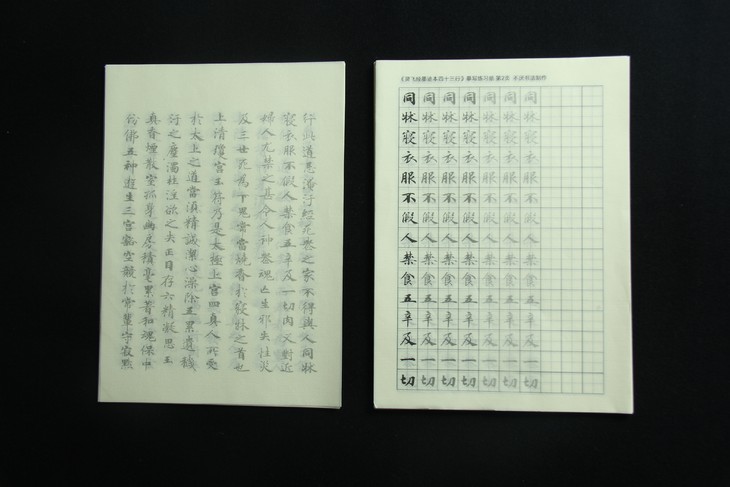 行此道忌淹汙經死喪之家不得與人同牀
寢衣服不假人禁食五辛及一切肉又對近
婦人尤禁之甚令人神喪魂亡生邪失性災
及三世死為下鬼常當燒香於寢牀之首也
上清瓊宮玉符乃是太極上宮四真人所受
於太上之道當須精誠潔心澡除五累遺穢
汙之塵濁杜淫欲之失正目存六精凝思玉
真香煙散室孤身幽房積毫累著和魂保中
仿佛五神遊生三宮豁空競於常輩守寂默
《灵飞经墨迹本四十三行》摹写练习册 第2页 书法制作
同同同同同同同
牀牀牀牀牀牀牀
寢寢寢寢寢寢寢
衣衣衣衣衣衣衣
服服服服服服服
不不不不不不不
假假假假假假假
人人人人人人人
禁禁禁禁禁禁禁
食食食食食食食
五五五五五五五
辛辛辛辛辛辛辛
及及及及及及及
一一一一一一一
切切切切切切切